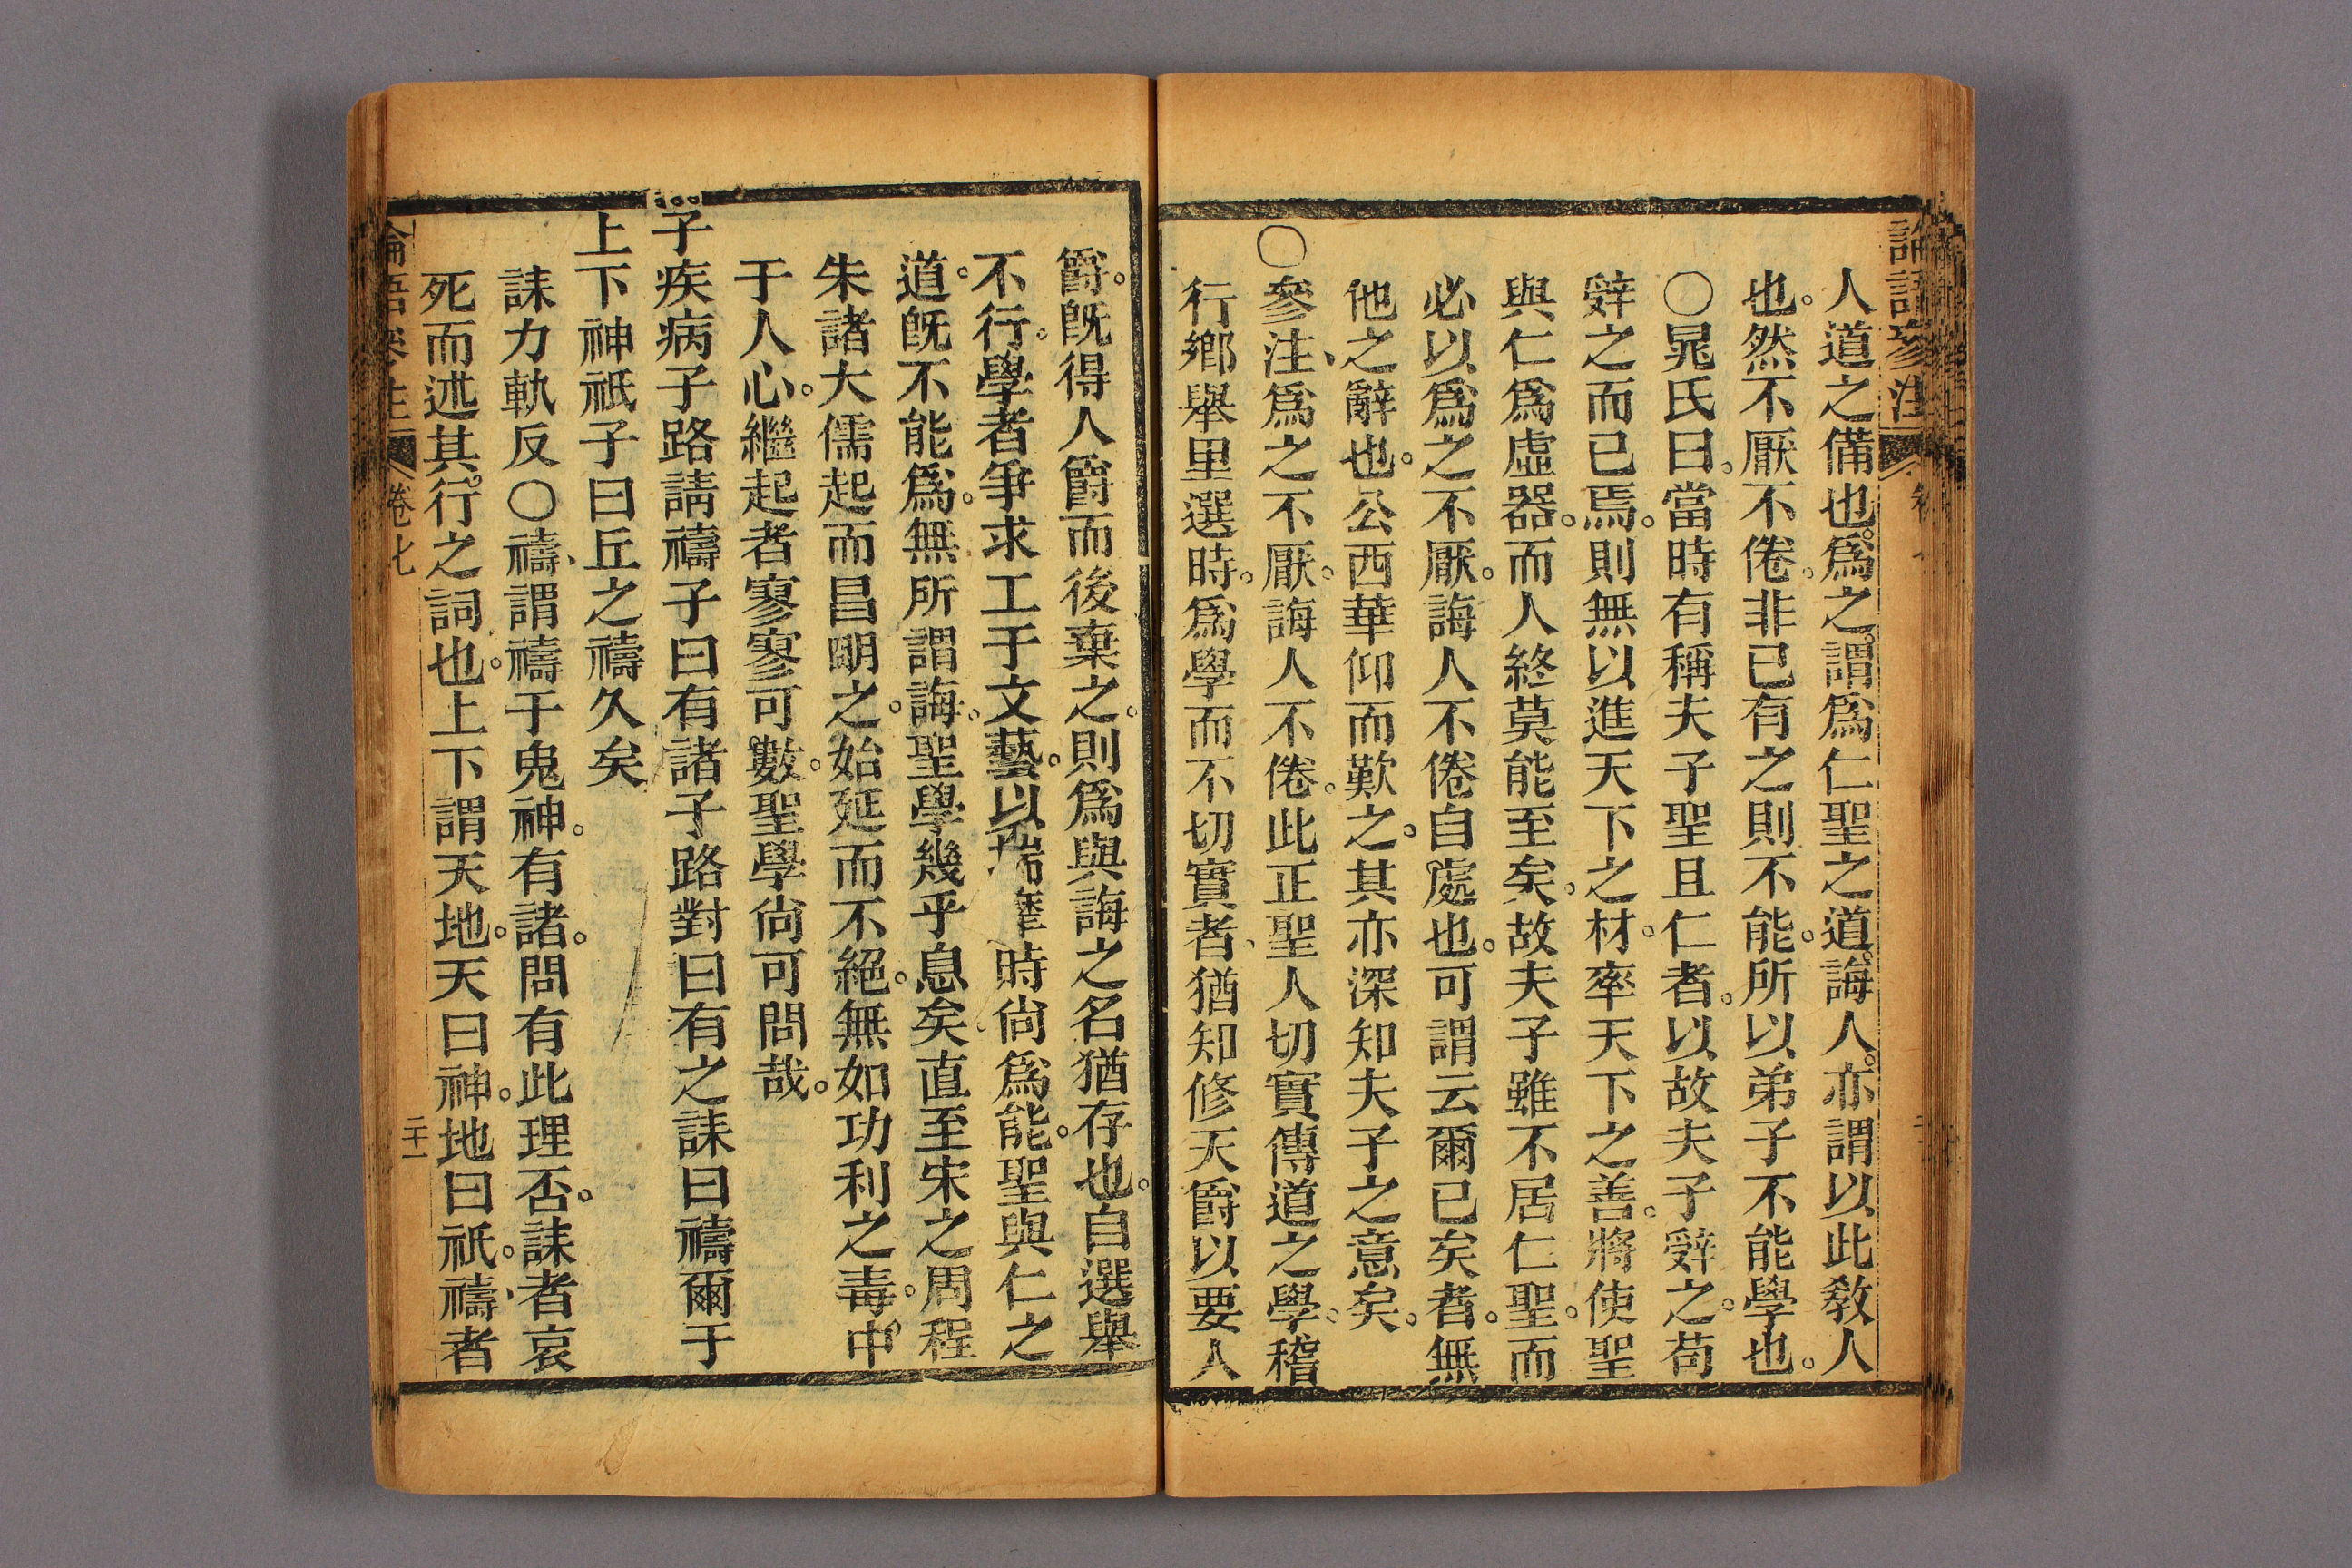 論語參注
人道之備也。爲之。謂爲仁聖之道。誨人。亦謂以此敎人
也。然不厭不倦。非已有之則不能。所以弟子不能學也。
〇晁氏曰。當時有稱夫子聖且仁者。以故夫子辤之。苟
辤之而已焉。則無以進天下之材。率天下之善。將使聖
與仁爲虛器。而人終莫能至矣。故夫子雖不居仁聖。而
必以爲之不厭。誨人不倦自處也。可謂云爾已矣者。無
他之辭也。公西華仰而歎之。其亦深知夫子之意矣。
〇參注、爲之不厭。誨人不倦。此正聖人切實傳道之學。稽
行鄉舉里選時。爲學而不切實者、猶知修天爵以要人
爵。旣得人爵而後棄之。則爲與誨之名猶存也。自選舉
不行。學者爭求工于文藝。以揣摩時尚爲能。聖與仁之
道。旣不能爲。無所謂誨。聖學幾乎息矣。直至宋之周程
朱諸大儒起而昌明之。始延而不絕。無如功利之毒。中
于人心。繼起者寥寥可數。聖學尙可問哉。
子疾病子路請禱子曰有諸子路對曰有之誄曰禱爾于
上下神祇子曰丘之禱久矣
誄力軌反〇禱、謂禱于鬼神。有諸。問有此理否。誄者哀
死而述其行之詞也。上下謂天地。天曰神。地曰祇。禱、者
論語參注 卷七 二十一